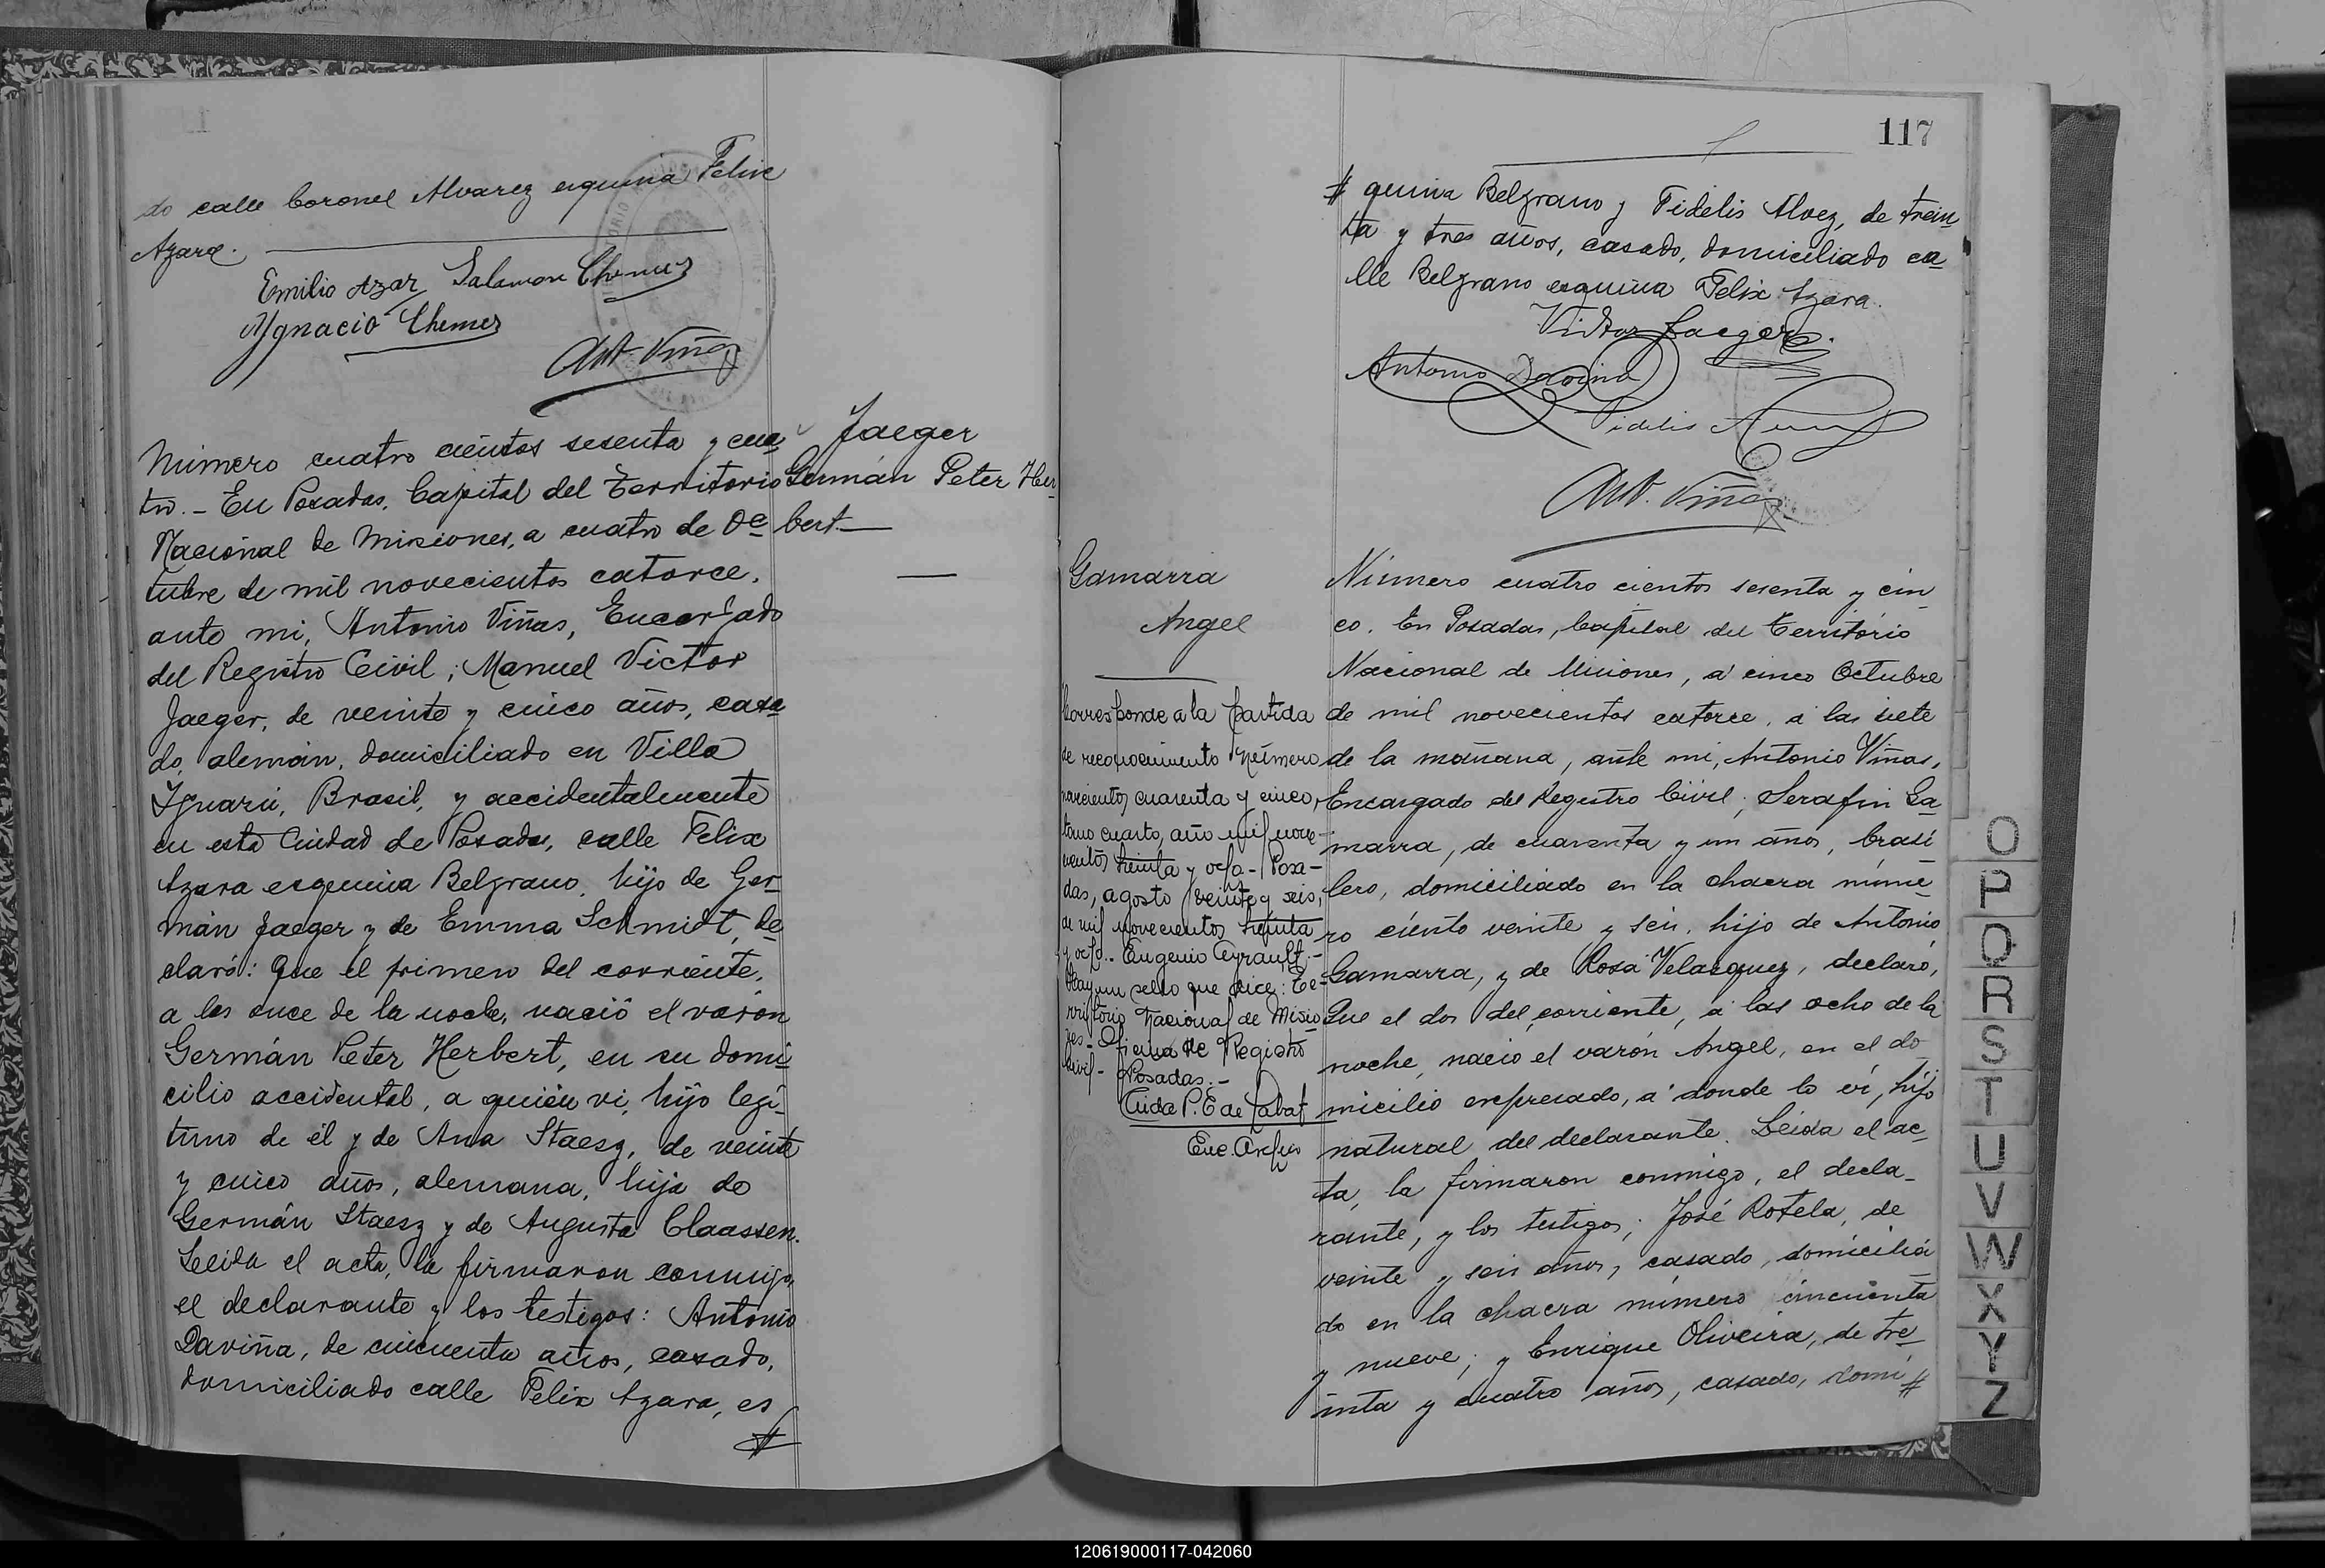 do calle Coronel Alvarez esquina Felix
Azara.
Emilio Azar Salamon Chemes
Ygnacio Chemes
Ant. Viñas
Jaeger
Germán Peter Her-
bert
Número cuatro cientos sesenta y cua
tro. - En Posadas, Capital del Territorio
Nacional de Misiones, a cuatro de Oc
tubre de mil novecientos catorce,
ante mi, Antonio Viñas, Encargado
del Registro Civil; Manuel Victor
Jaeger, de veinte y cinco años, casa
do, alemán, domiciliado en Villa
Iguarú, Brasil, y accidentalmente
en esta Ciudad de Posadas, calle Felix
Azara esquina Belgrano, hijo de Ger-
mán Jaeger y de Emma Schmidt, de
claró: Que el primero del corriente,
a las once de la noche, nació el varón
Germán Peter Herbert, en su domi-
cilio accidental, a quién vi, hijo legí-
timo de él y de Ana Staesz, de veinte
y cinco años, alemana, hija de
Germán Staesz y de Augusta Claassen.
Leida el acta, la firmaron conmigo,
el declarante y los testigos: Antonio
Daviña, de cincuenta años, casado,
domiciliado calle Felix Azara, es
#
117
# quina Belgrano y Fidelis Alvez, de trein
ta y tres años, casado, domiciliado ca
lle Belgrano esquina Felix Azara.
Victor Jaeger.
Antonio Daviña
Fidelis
Ant. Viñas
Gamarra
Angel
Corresponde a la partida
de reconocimiento número
novecientos cuarenta y cinco,
tomo cuarto, año mil nove-
cientos treinta y ocho - Posa-
das, agosto veinte y seis,
de mil novecientos treinta
y ocho.- Eugenio Ayrault.-
Hay un sello que dice: Te-
rritorio Nacional de Misio
nes - Oficina de Registro
Civil - Posadas.-
Enc. Archivo
Número cuatro cientos sesenta y cin
co. En Posadas, Capital del Território
Nacional de Misiones, á cinco Octubre
de mil novecientos catorce, á las siete
de la mañana, ante mi, Antonio Viñas,
Encargado del Registro Civil; Serafin Ga
marra, de cuarenta y un años, brasi
lero, domiciliado en la chacra núme
ro ciento veinte y seis, hijo de Antonio
Gamarra, y de Rosa Velazquez, declaró,
Que el dos del corriente, á las ocho de la
noche, nació el varón Angel, en el do
micilio expresado, á donde lo ví, hijo
natural del declarante. Leida el ac
ta, la firmaron conmigo, el decla-
rante, y los testigos; José Rotela, de
veinte y seis años, casado, domicilia
do en la chacra número cincuenta
y nueve; y Enrique Oliveira, de tre
inta y cuatro años, casado, domi #
O
P
Q
R
S
T
U
V
W
X
Y
Z
120619000117-042060